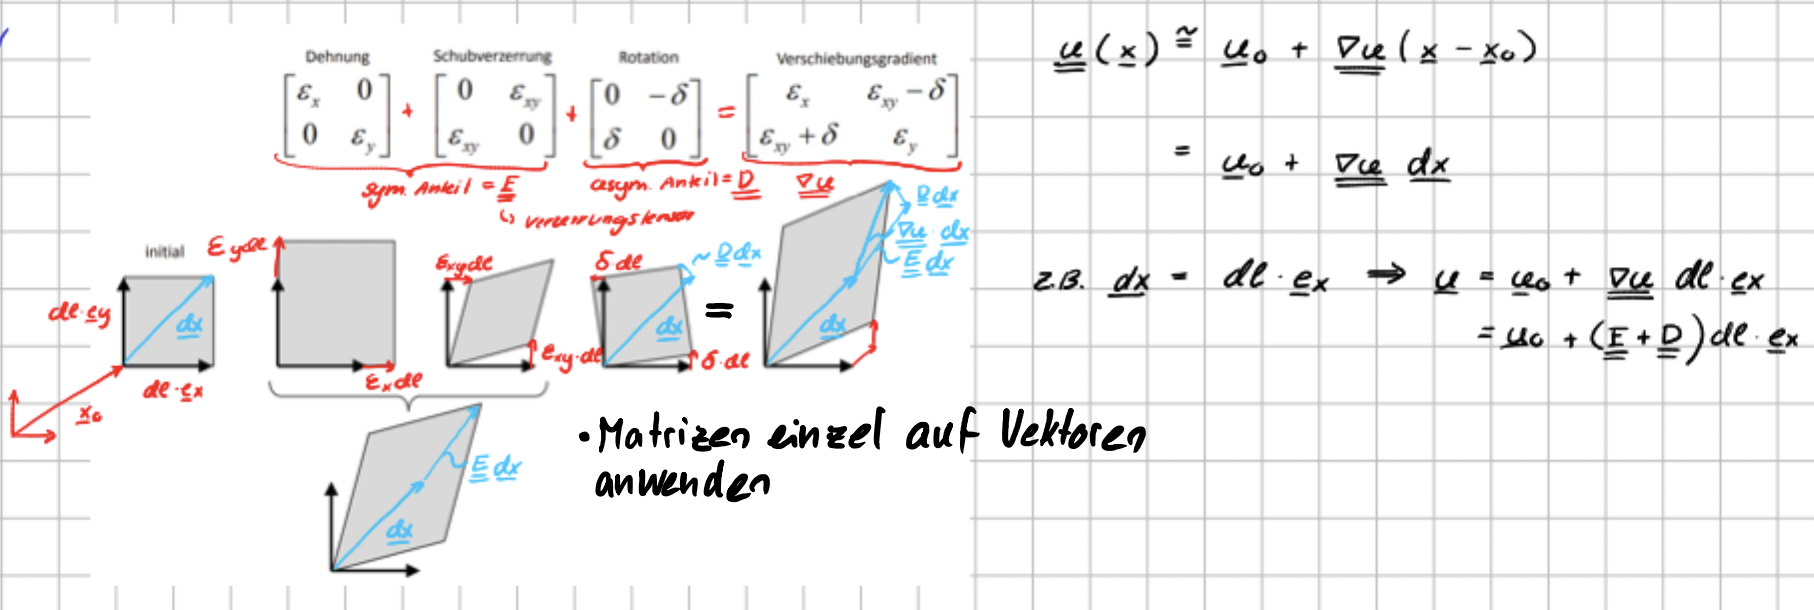 Dehnung Schubverzerrung Rotation Verschiebungsgradient
[εx 0; 0 εy] + [0 εxy; εxy 0] + [0 −δ; δ 0] = [εx εxy − δ; εxy + δ εy]
sym. Anteil = E asym. Anteil = D ∇u
↳ Verzerrungstensor
initial
dl·ey
dx
dl·ex
x0
εy dl
εx dl
εxy dl
εxy·dl
δ dl
~ D dx
dx
δ·dl
=
D dx
∇u · dx
E dx
dx
E dx
dx
• Matrizen einzel auf Vektoren
anwenden
u(x) ≅ u0 + ∇u (x − x0)
= u0 + ∇u dx
z.B. dx = dl · ex ⇒ u = u0 + ∇u dl · ex
= u0 + (E + D) dl · ex